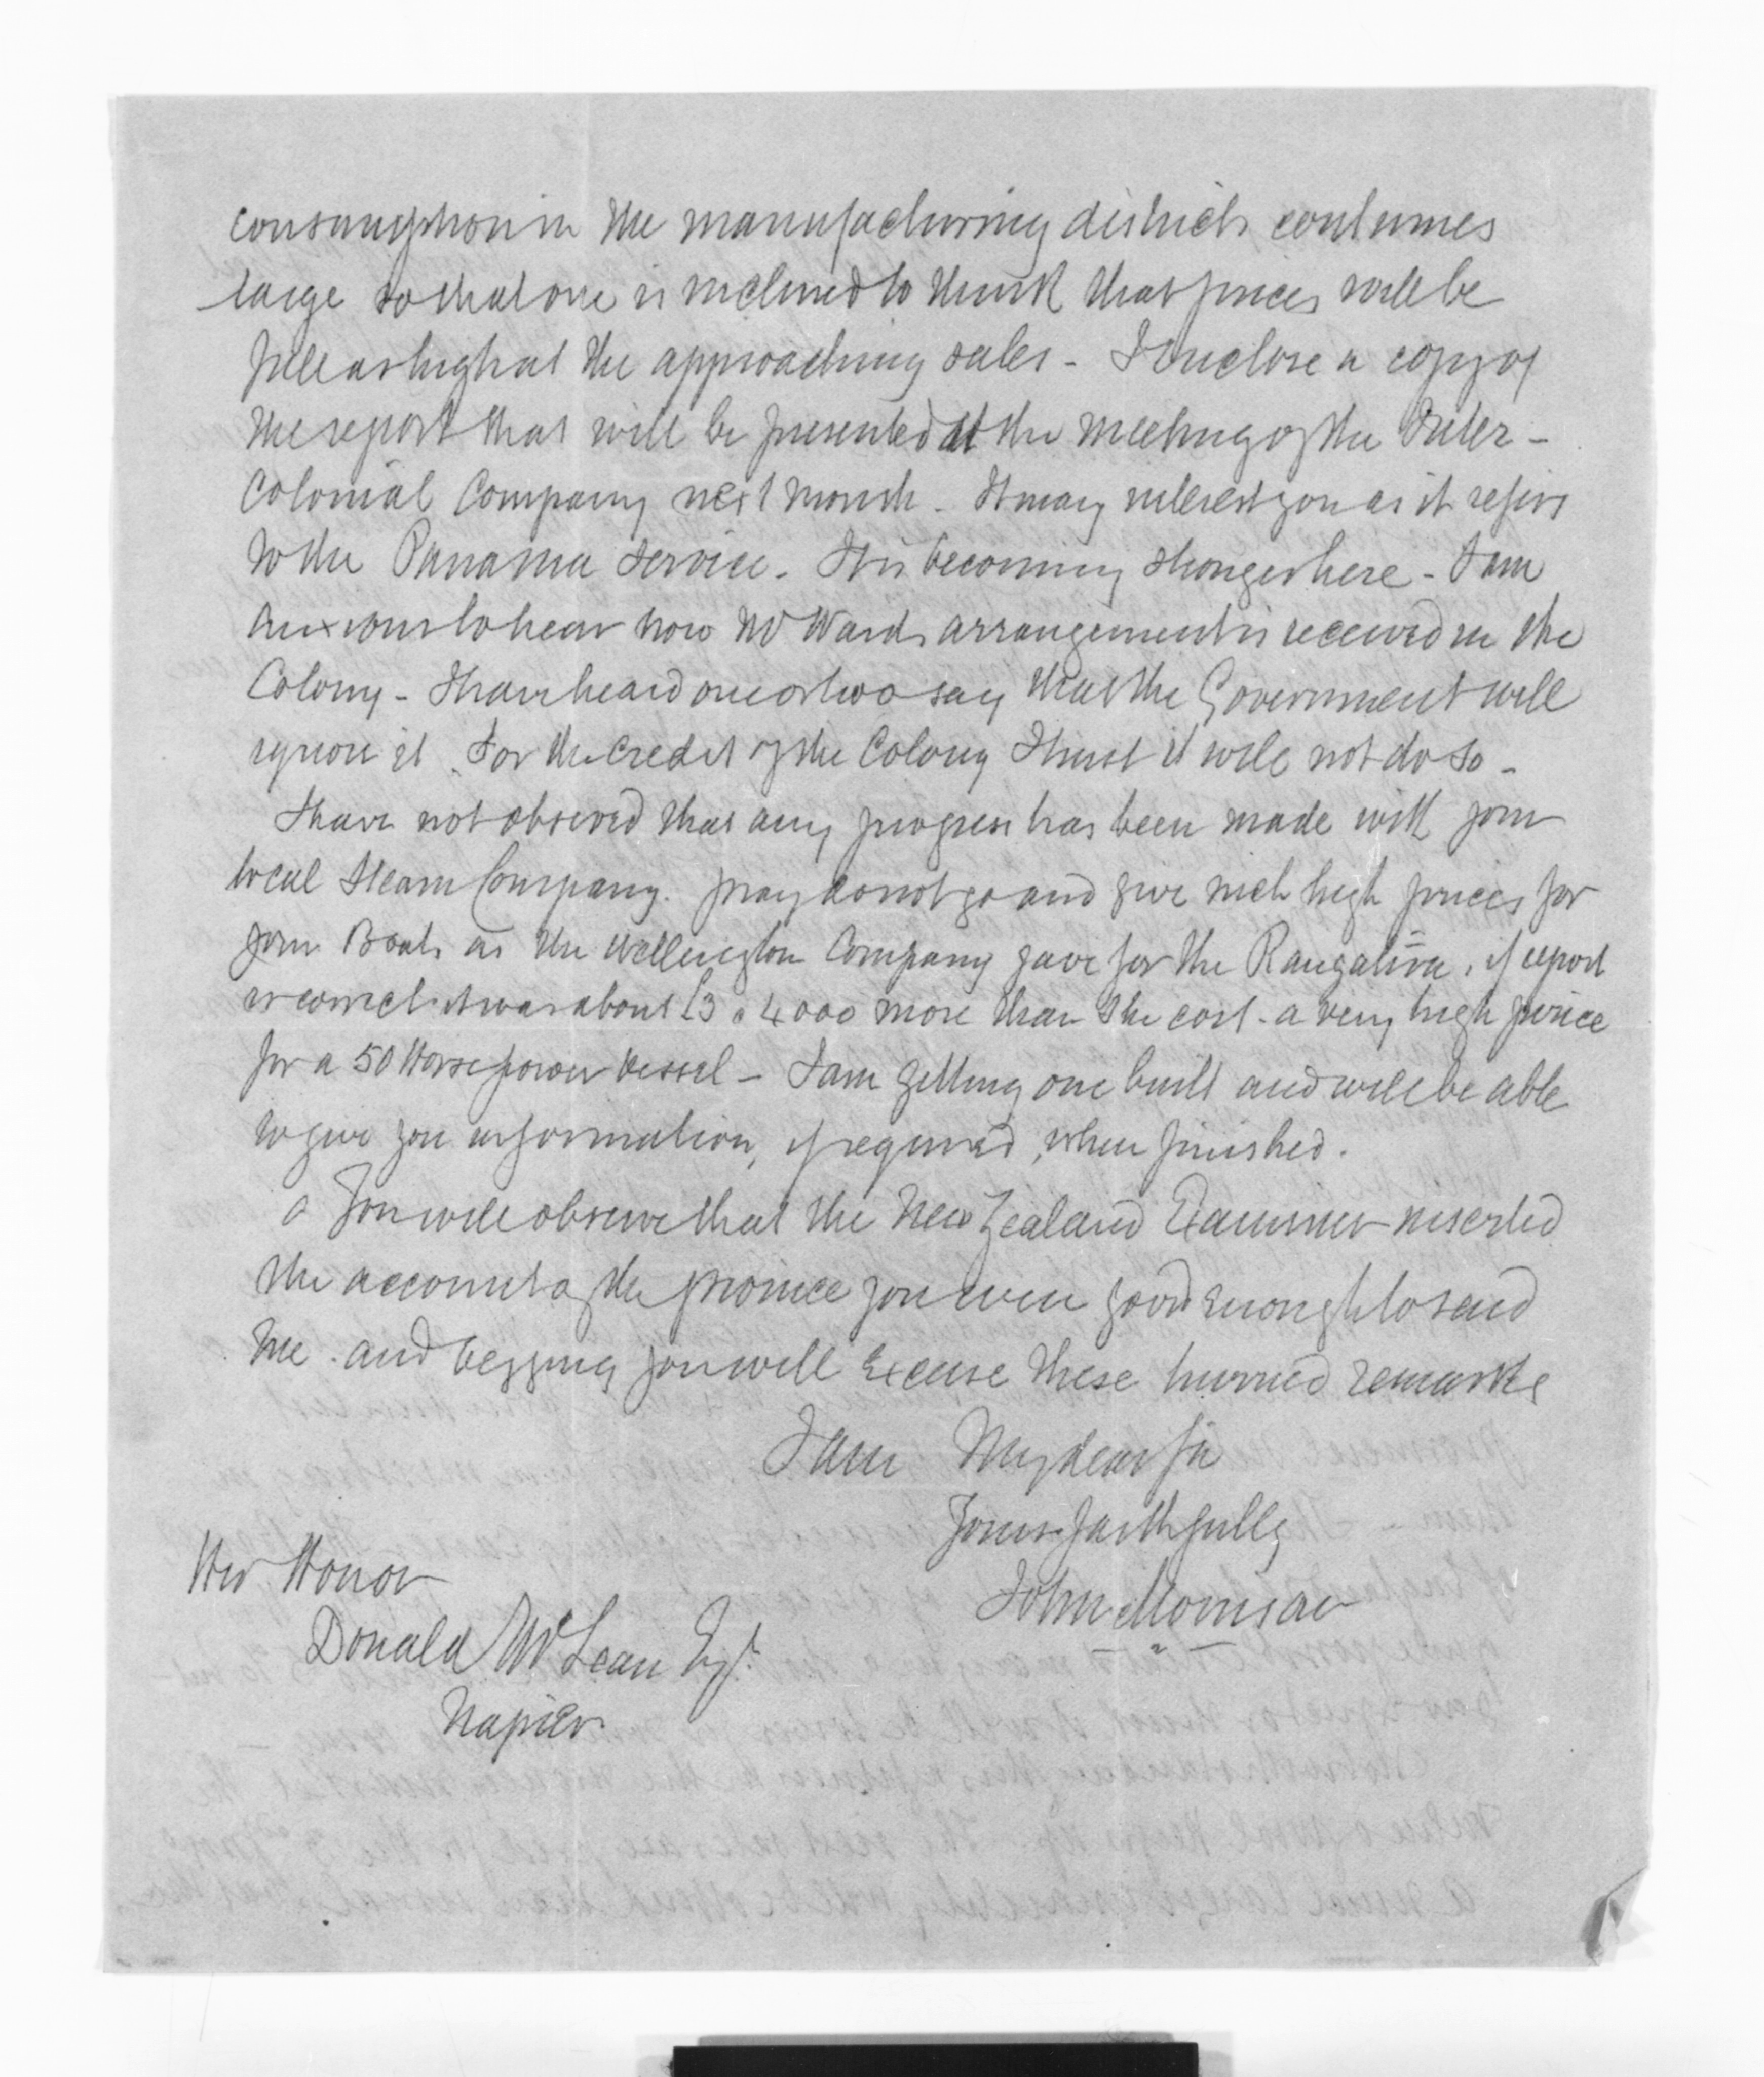 consumption in the manufacturing districts continues
large so that one is inclined to think that prices will be
full as high at the approaching sales - I enclose a copy of
the report that will be presented at the meeting of the Inter-
Colonial Company next month - It may interest you as it refers
to the Panama Service - It is becoming stronger here - I am
anxious to hear how Mr Wards arrangement is received in the
Colony - I have heard one or two say that the Government will
ignore it. For the credit of the Colony I trust it will not do so -
I have not observed that any progress has been made with your
local Steam Company. pray do not go and give such high prices for
your Boats as the Wellington Company gave for the Rangatira, if report
is correct it was about £3 a 4000 more than the cost - a very high price
for a 50 Horse power vessel - I am getting one built and will be able
to give you information, if required, when finished.
You will observe that the New Zealand Examiner inserted
the account of the province you were good enough to send
me. and begging you will excuse these hurried remarks
I am My dear Sir
Yours faithfully
John Morrison
His Honor
Donald McLean Esqr.
Napier